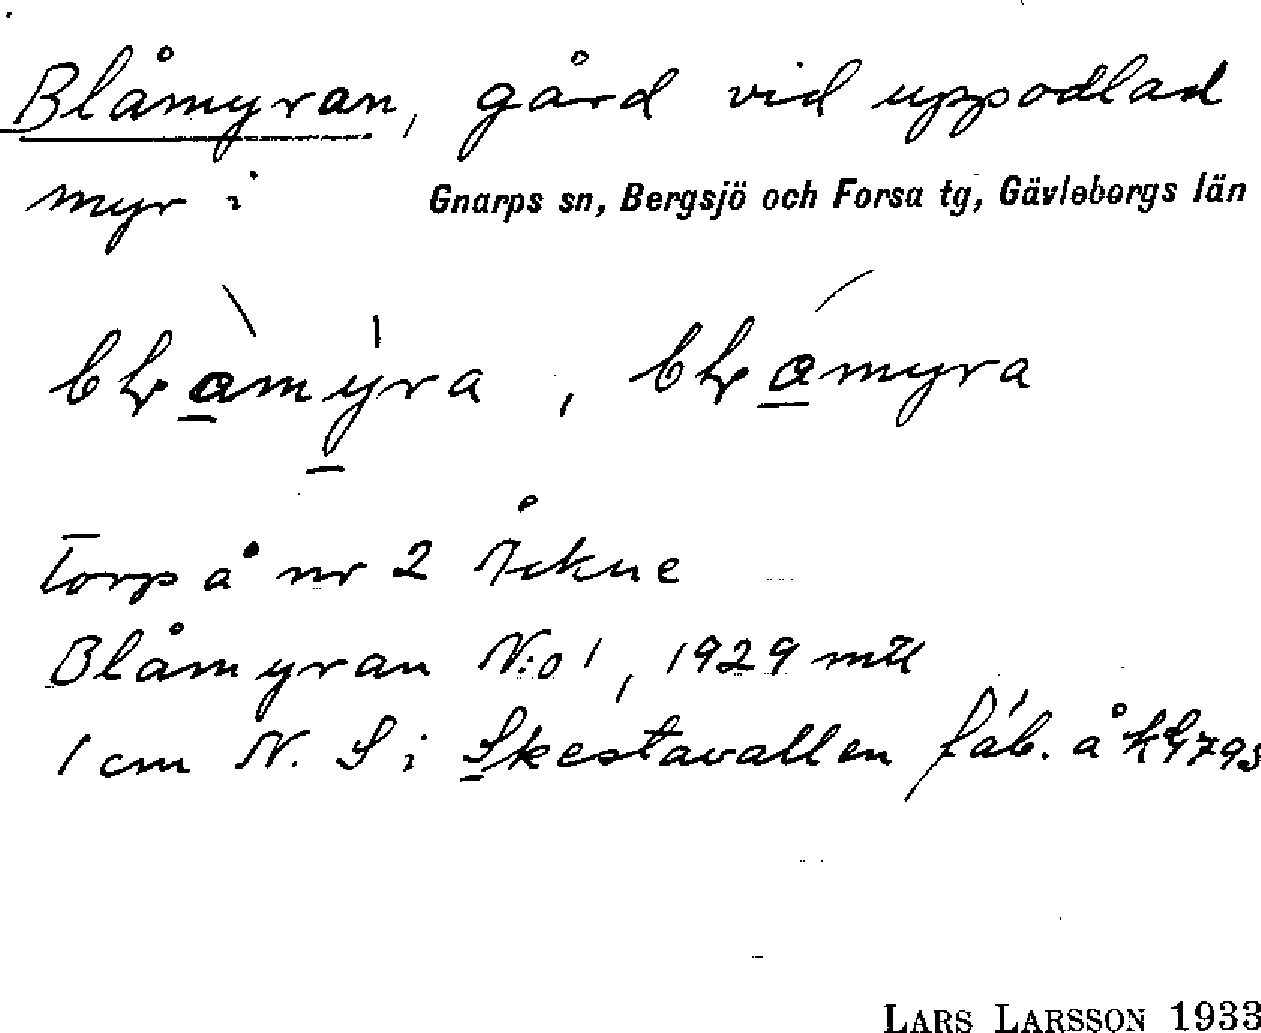 Blåmyran, gård vid uppodlad
myr i Gnarps sn, Bergsjö och Forsa tg, Gävleborgs län
Torp å nr 2 Åckne
Blåmyran N:o 1, 1929 mtl
1 cm N. S i Skestavallen fäb. å
LARS LARSSON 1933